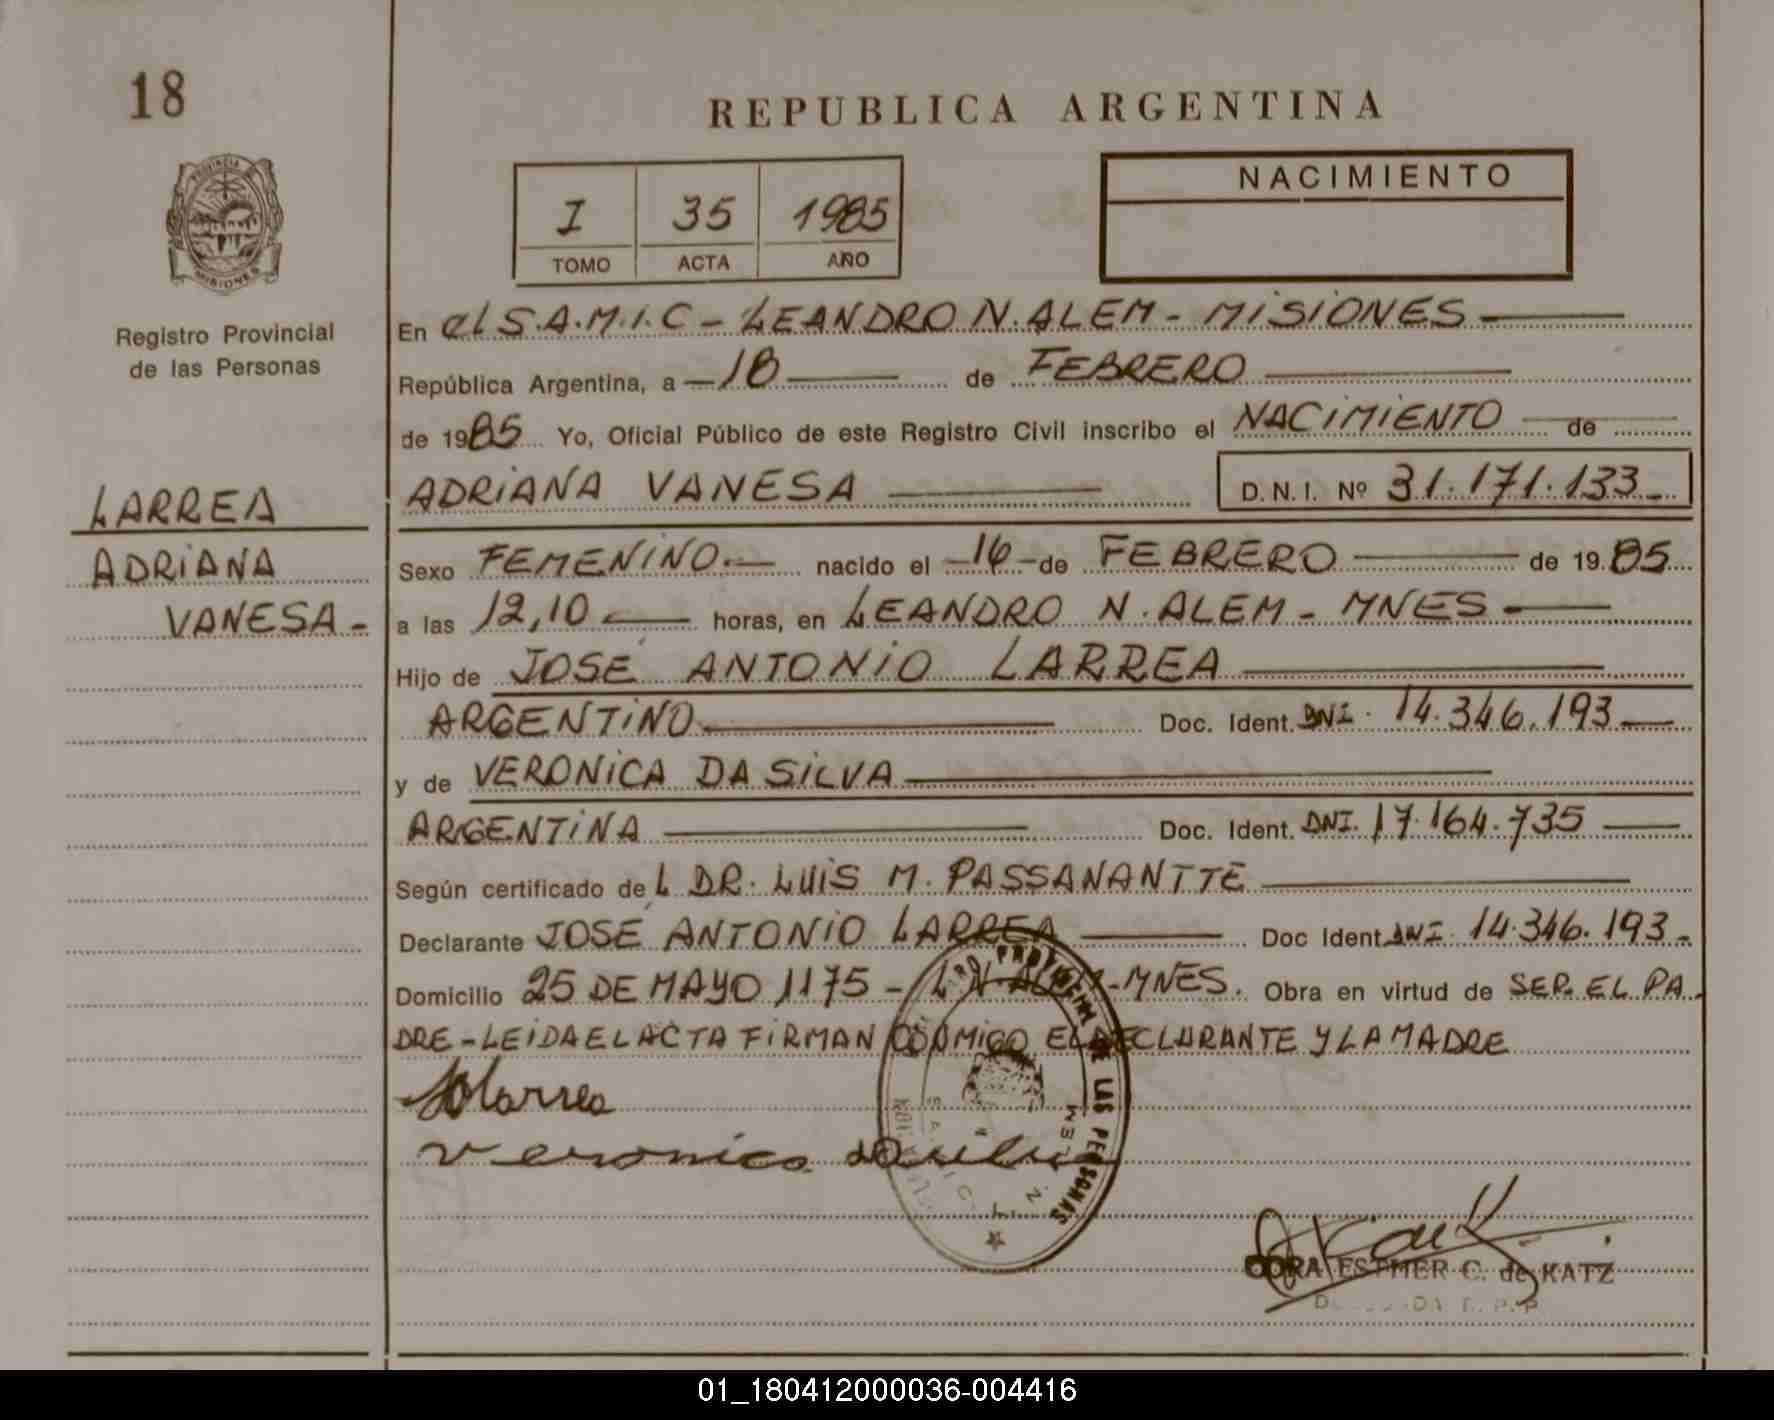 18
REPUBLICA ARGENTINA
PROVINCIA
MISIONES
I 35 1985
TOMO ACTA AÑO
NACIMIENTO
Registro Provincial
de las Personas
En el S.A.M.I.C - LEANDRO N. ALEM - MISIONES
República Argentina, a 18 de FEBRERO
de 1985 Yo, Oficial Público de este Registro Civil inscribo el NACIMIENTO de
ADRIANA VANESA D.N.I. Nº 31.171.133
LARREA
ADRIANA
VANESA -
Sexo FEMENINO.- nacido el 16 de FEBRERO de 1985
a las 12,10 horas, en LEANDRO N. ALEM - MNES -
Hijo de JOSÉ ANTONIO LARREA
ARGENTINO Doc. Ident. DNI. 14.346.193
y de VERONICA DA SILVA
ARGENTINA Doc. Ident. DNI. 17.164.735
Según certificado de L DR. LUIS M. PASSANANTTE
Declarante JOSÉ ANTONIO LARREA Doc Ident DNI 14.346.193 -
Domicilio 25 DE MAYO 1175 - L.N. ALEM - MNES. Obra en virtud de SER EL PA
DRE - LEIDA EL ACTA FIRMAN CONMIGO EL DECLARANTE Y LA MADRE
Larrea
Veronica
DE LAS PERSONAS
ESTHER C. de KATZ
01_180412000036-004416